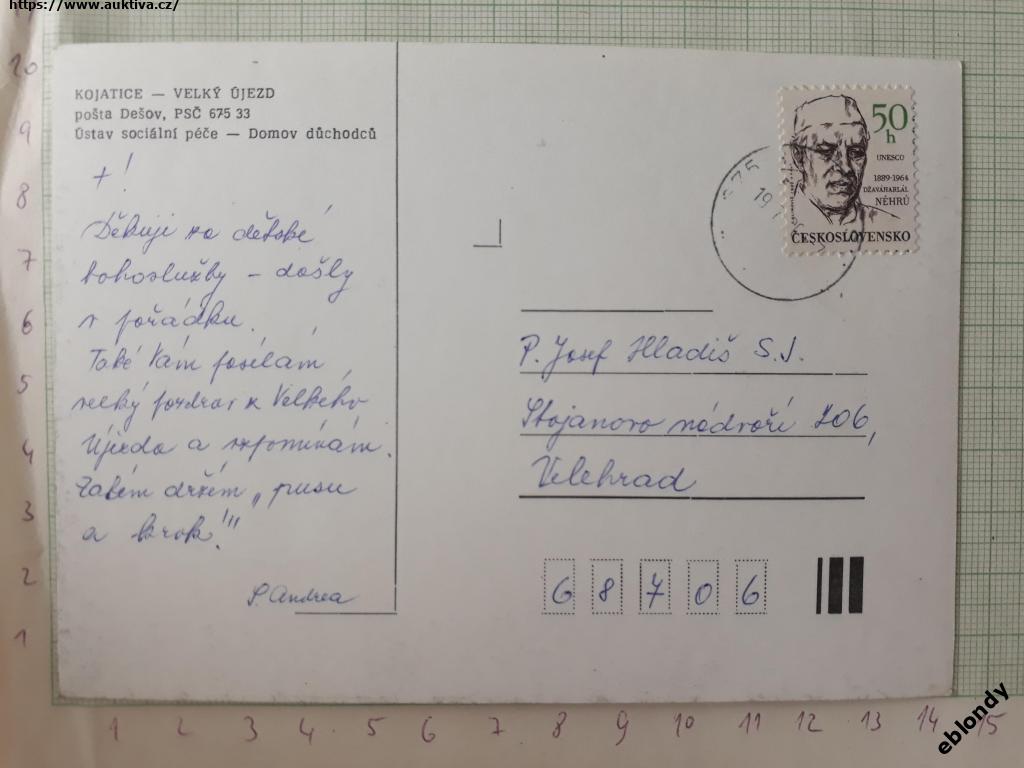 https://www.auktiva.cz/
KOJATICE — VELKÝ ÚJEZD
pošta Dešov, PSČ 675 33
Ústav sociální péče — Domov důchodců
+!
Děkuji za dětské
bohoslužby - došly
v pořádku.
Také Vám posílám
velký pozdrav z Velkého
Újezda a vzpomínám.
Zatím držím „pusu
a krok!"
S. Andrea
50
h
UNESCO
1889-1964
DŽAVÁHARLÁL
NÉHRÚ
ČESKOSLOVENSKO
675
19
P. Josef Hladiš S.J.
Stojanovo nádvoří 206,
Velehrad
6 8 7 0 6
10
9
8
7
6
5
4
3
2
1
1 2 3 4 5 6 7 8 9 10 11 12 13 14 15
eblondy